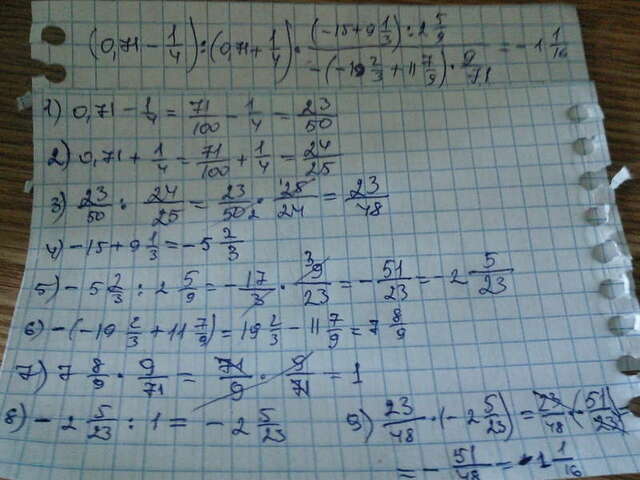 (0,71 - 1/4) : (0,71 + 1/4) · ((-15 + 9 1/3) : 2 5/9) / (-(-19 2/3 + 11 7/9) · 9/71) = -1 1/16
1) 0,71 - 1/4 = 71/100 - 1/4 = 23/50
2) 0,71 + 1/4 = 71/100 + 1/4 = 24/25
3) 23/50 : 24/25 = 23/50 2 · 25/24 = 23/48
4) -15 + 9 1/3 = -5 2/3
5) -5 2/3 : 2 5/9 = -17/3 · 3 9/23 = -51/23 = -2 5/23
6) -(-19 2/3 + 11 7/9) = 19 2/3 - 11 7/9 = 7 8/9
7) 7 8/9 · 9/71 = 71/9 · 9/71 = 1
8) -2 5/23 : 1 = -2 5/23 9) 23/48 · (-2 5/23) = 23/48 (-51/23) =
= -51/48 = -1 1/16